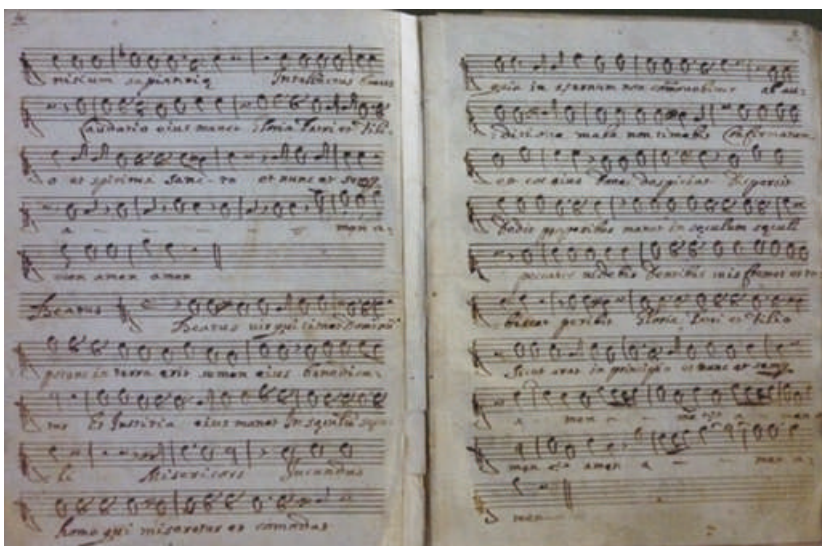 nitium sapientiæ Intellectus bonus
Laudatio eius manet Gloria Patri et Fili-
o et spiritui Sanc- to et nunc et semp.
a - - - - men a-
men amen amen
Beatus Beatus vir qui timet Dominũ
potens in terra erit semen eius benedice-
tur et Iustitia eius manet in sęculũ
li Misericors Jucundus
homo qui miseretur et comodat
quia in eternum non comouebitur ab au-
ditione mala non timebit Confirmatum
est cor eius donec despiciat Dispersit
Dedit pauperibus manet in sęculum sęculi
peccator videbit dentibus suis fremet et ta-
bescet peribit Gloria Patri et Filio
Sicut erat in principio et nunc et semp.
a - men a - a - men
men amen a - - men a-
men